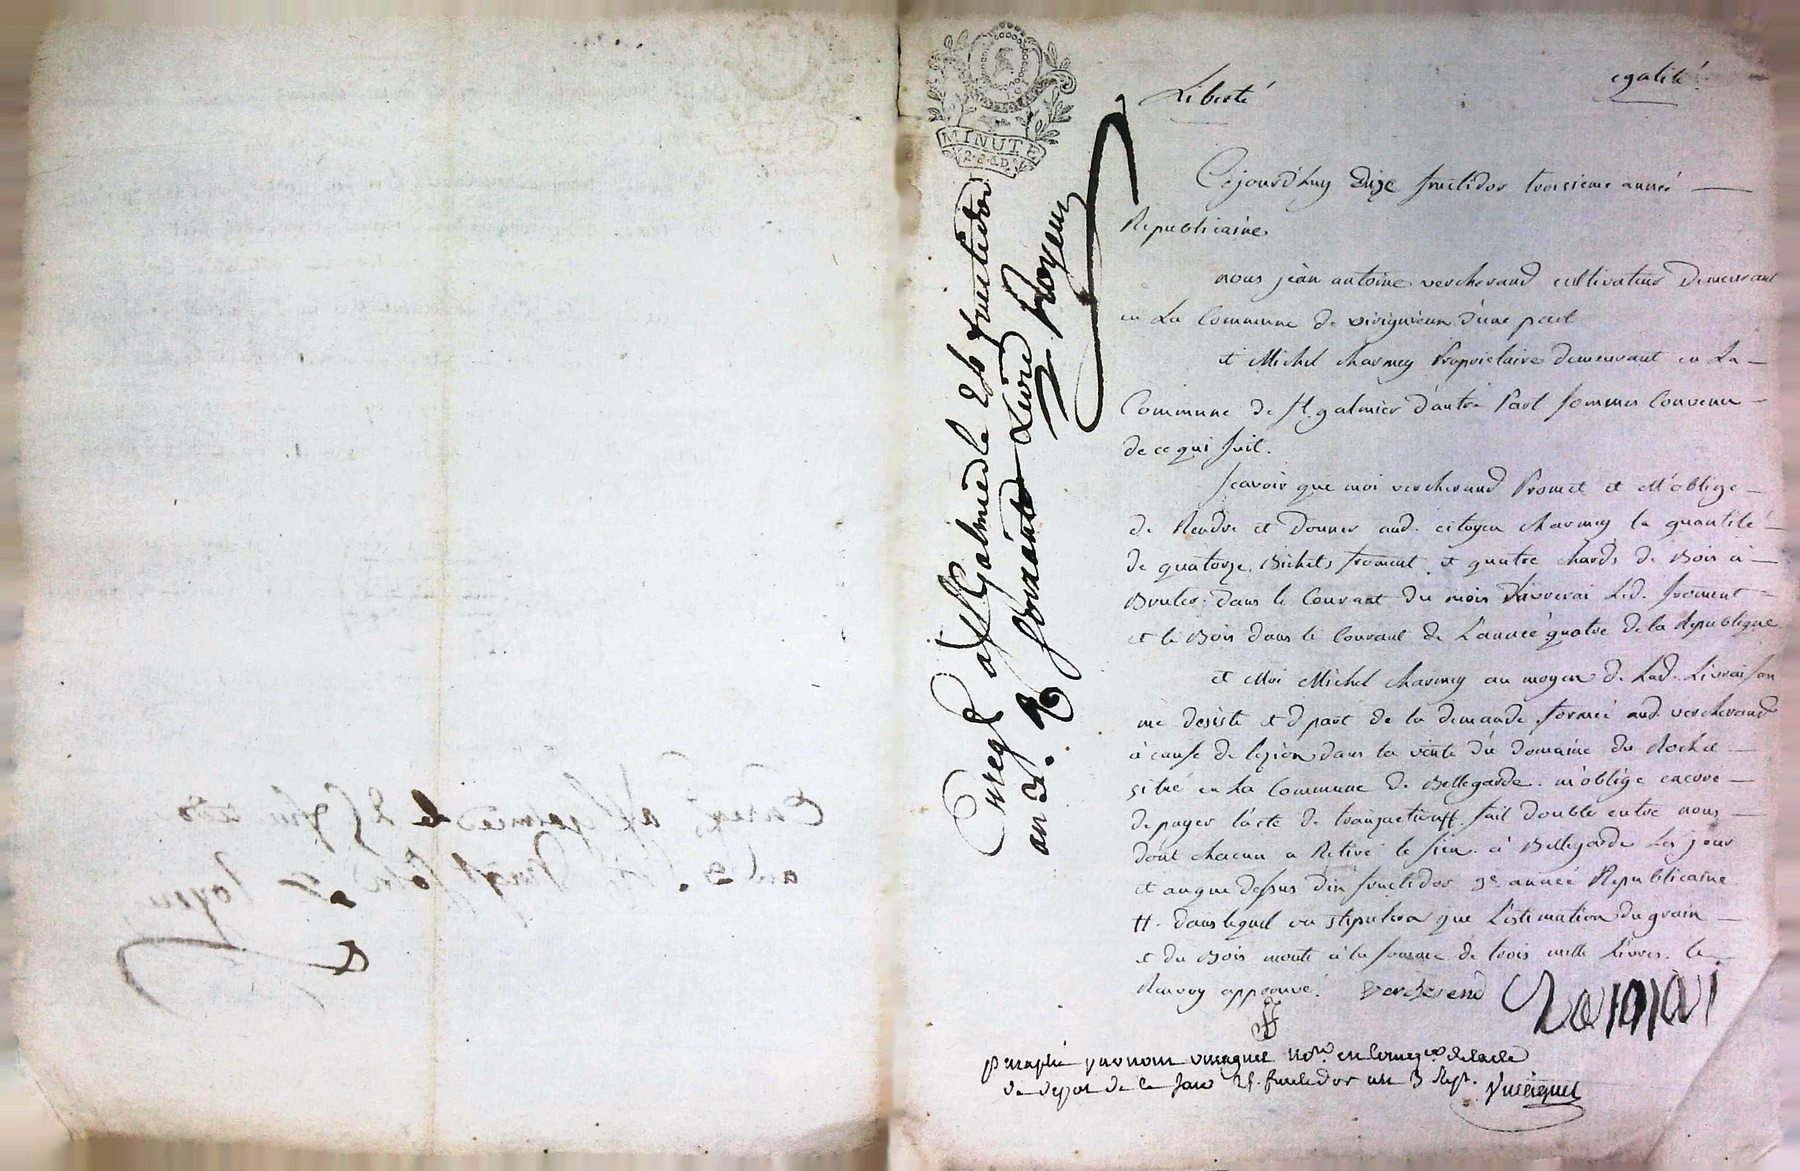 MINUTE
2. S. D.
Liberté
egalité
Cejourd'huy Dixe fructidor troisieme année
Republicaine
nous jean antoine vercherand cultivateur Demeurant
en La Commune de virigneux d'une part
et Michel charmey Proprietaire demeurant en La
Commune de St. galmier d'autre Part sommes Convenu
de ce qui suit.
scavoir que moi vercherand Promet et M'oblige
de Rendre et Donner aud. citoyen charmey la quantité
de quatorze Bichets froment et quatre chards de Bois à
Bruler. dans le Courant du mois Led. froment
et le Bois dans le Courant de L'année quatre de la Republique
et Moi Michel charmey au moyen de Lad. Livraison
me desiste et dpart de la demande formée aud. vercherand
à cause de lezion dans la vente du domaine du Roche
situé en La Commune de Bellegarde. m'oblige encore
de payer l'acte de tranzaction # fait double entre nous
dont chacun a Retiré le sien. à Bellegarde Les jour
et an que dessus dix fructidor 3e. année Republicaine
#. dans lequel on stipulera que L'estimation du grain
et du Bois monte à la somme de trois mille Livres. le
Renvoy approuvé. vercherand
paraphé par nous notre. en
de depot de ce jour 25. fructidor an 3 Rep.
Enregt. a St Galmier le 26 fructidor
an 3e. R soixante Livre
Royeur
Enregt. a St galmier le 25 fructidor
an 3. vingt sols